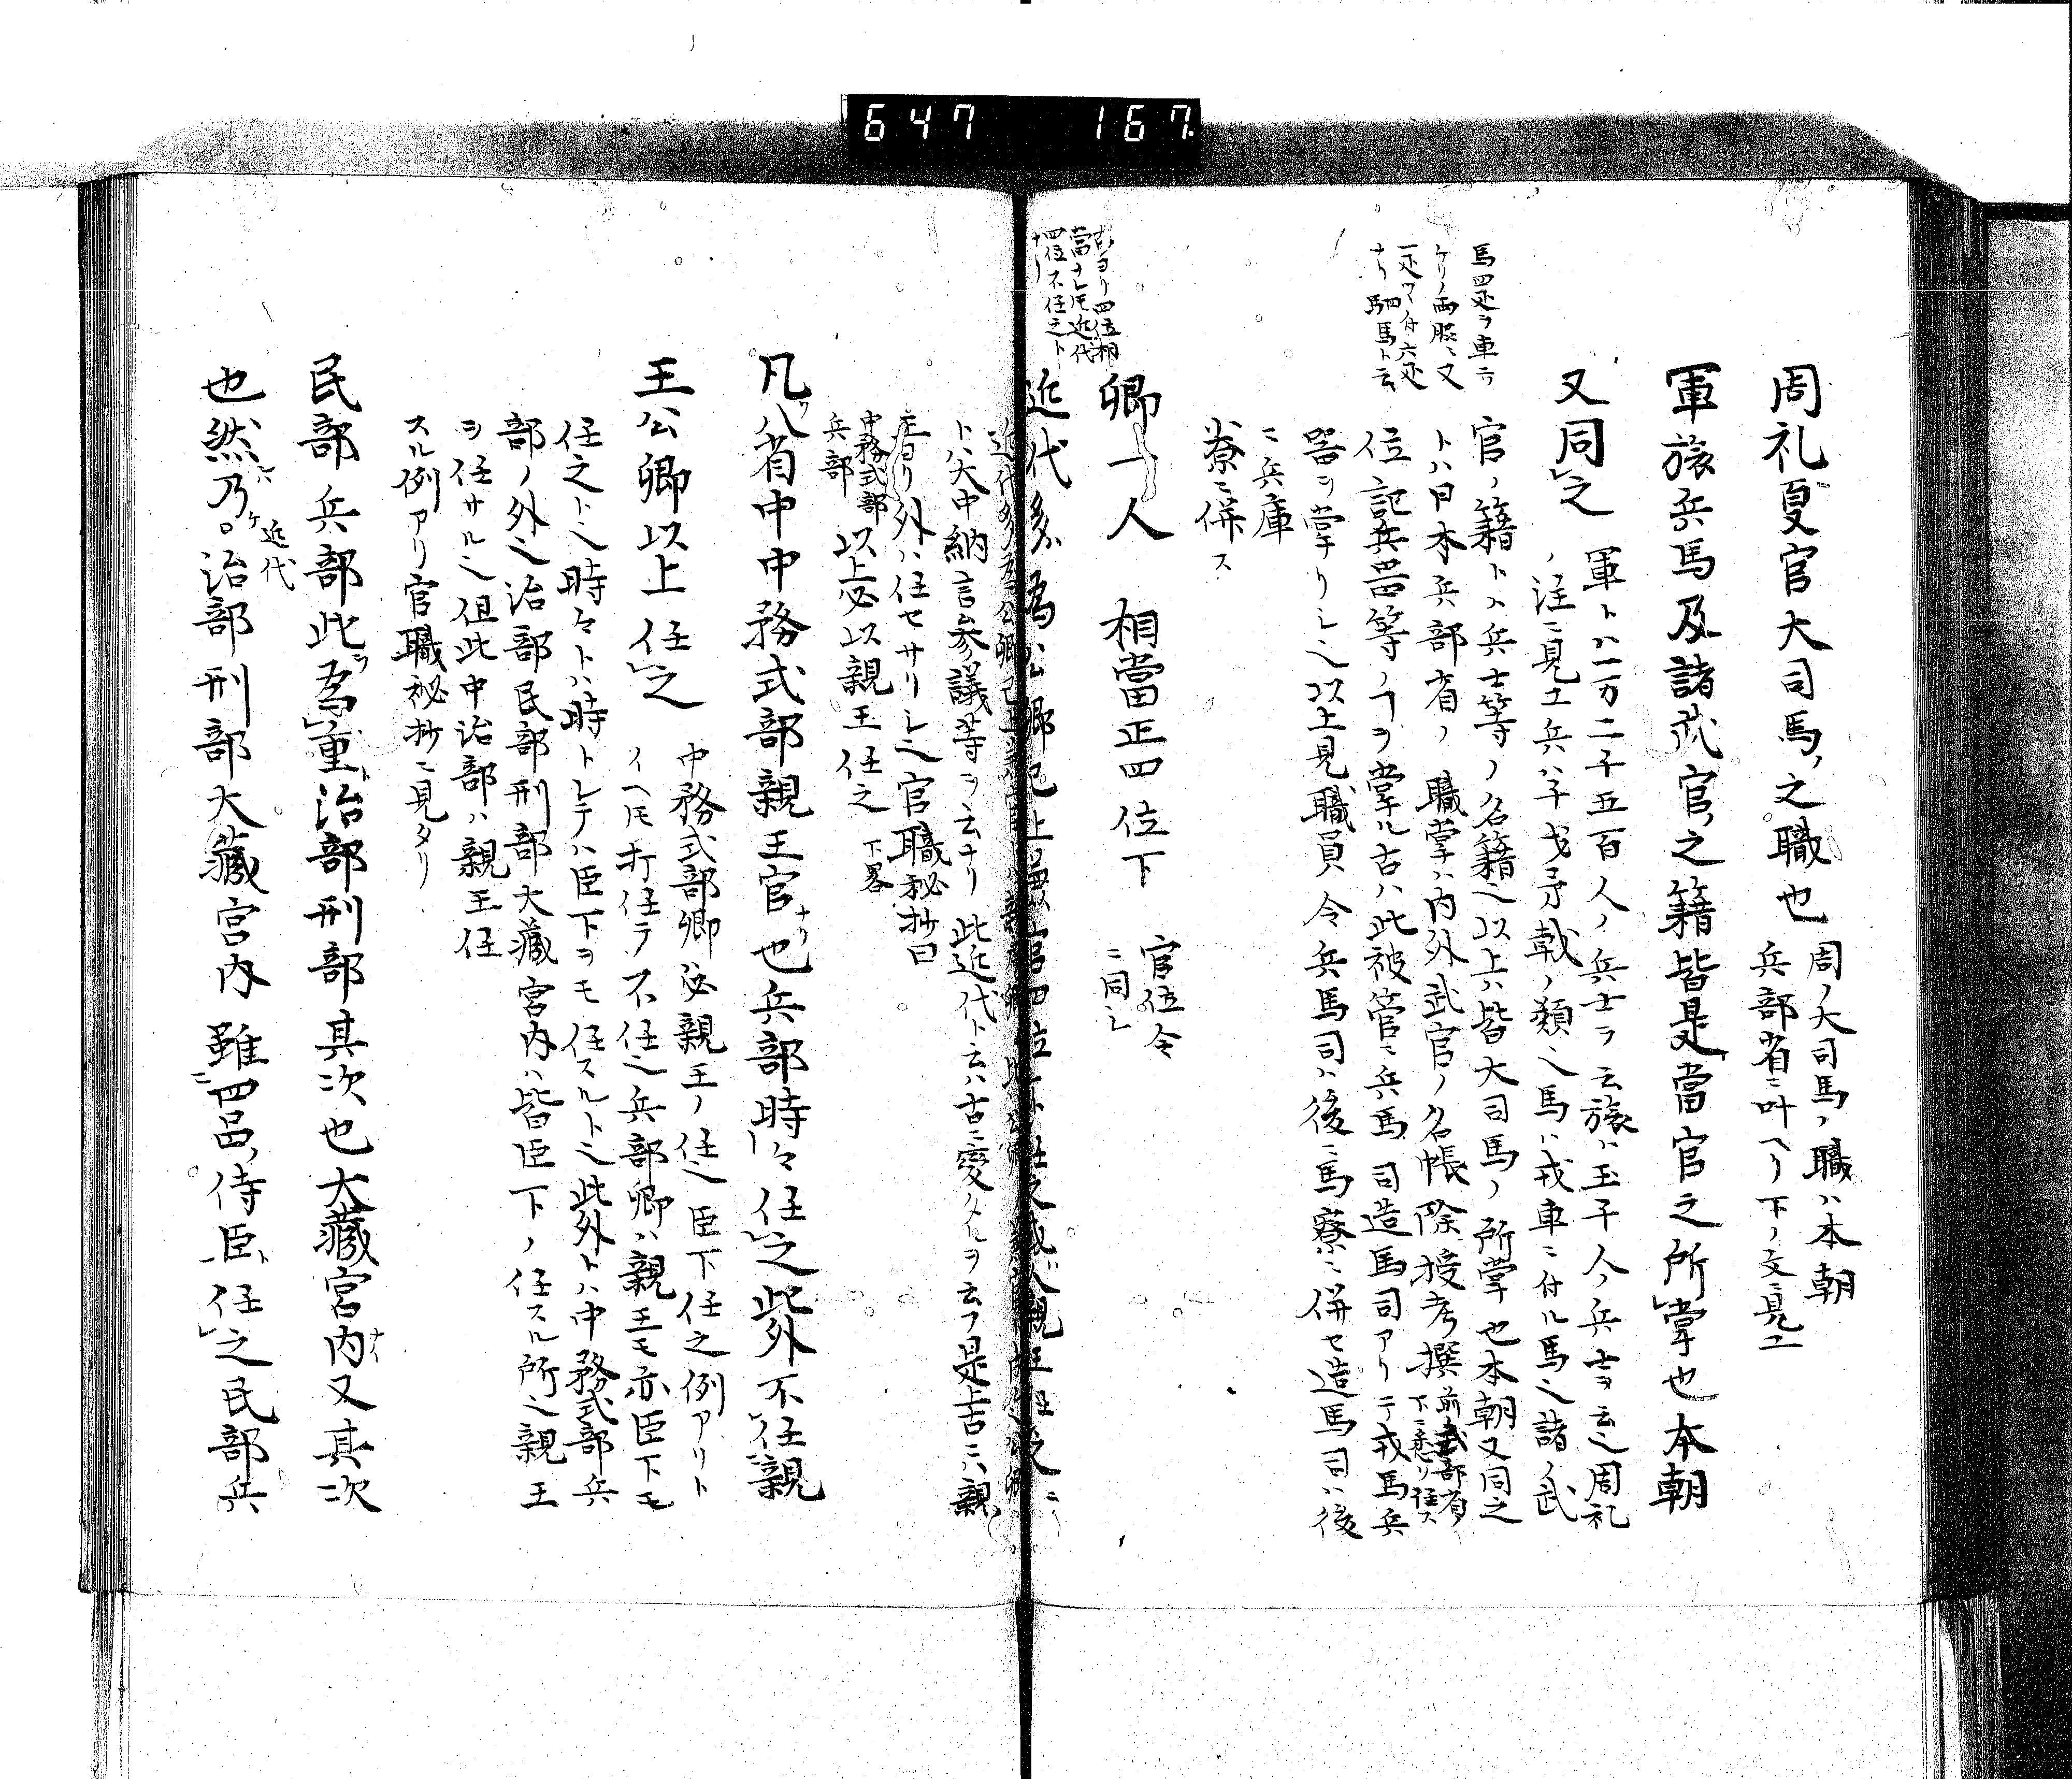 647 167
周礼夏官大司馬ノ之職也
周ノ大司馬ノ職ハ本朝
兵部省ニ叶ヘリ下ノ文ニ見エ
軍旅兵馬及諸武官ノ之籍皆是當官之所掌也本朝
又同之
軍トハ一万二千五百人ノ兵士ヲ云旅ハ五千人ノ兵士ヲ云也周礼
ノ注ニ見エ兵ハ干戈矛戟ノ類也馬ハ戎車ニ付ル馬也諸ノ武
官ノ籍トハ兵士等ノ名籍也以上ハ皆大司馬ノ所掌也本朝又同之
トハ日本兵部省ノ職掌ハ内外武官ノ名帳除授考撰
前式部省ノ
下ニ悉ク註ス
位記兵器等ノヿヲ掌ル古ハ此被管ニ兵馬司造馬司アリテ戎馬兵
器ヲ掌リシ也以上見職員令兵馬司ハ後ニ馬寮ニ併セ造馬司ハ後
ニ兵庫
寮ニ併ス
馬四疋ヲ車ニ
ケリノ両服ニ又
一疋ツヽ付六疋
ナリ駟馬ト云
卿一人 相當正四位下
官位令
ニ同シ
古ヨリ四位相
當ナレ圧近代
四位不任之ト
ナリ
近代多為公卿已上兼官四位不任之或又親王任之
トハ大中納言参議等ヲ云ナリ此近代ト云ハ古ニ変タルヲ云フ是上古ニハ親
王ヨリ外ハ任セサリシ也官職秘抄曰
中務式部
兵部
以上必以親王任之
下畧
凡八省中中務式部親王官也兵部時々任之此外不任親
王公卿以上任之
中務式部卿ハ必親王ノ任也臣下任之例アリト
イヘ圧打任テ不任也兵部卿ハ親王モ亦臣下モ
任之ト也時々トハ時トシテハ臣下ヲモ任スルト也此外トハ中務式部兵
部ノ外也治部民部刑部大藏宮内ハ皆臣下ノ任スル所也親王
ヲ任サル也但此中治部ハ親王任
スル例アリ官職秘抄ニ見タリ
民部兵部此為重治部刑部其次也大藏宮内又其次
也然乃近代治部刑部大藏宮内雖四品ノ侍臣任之民部兵